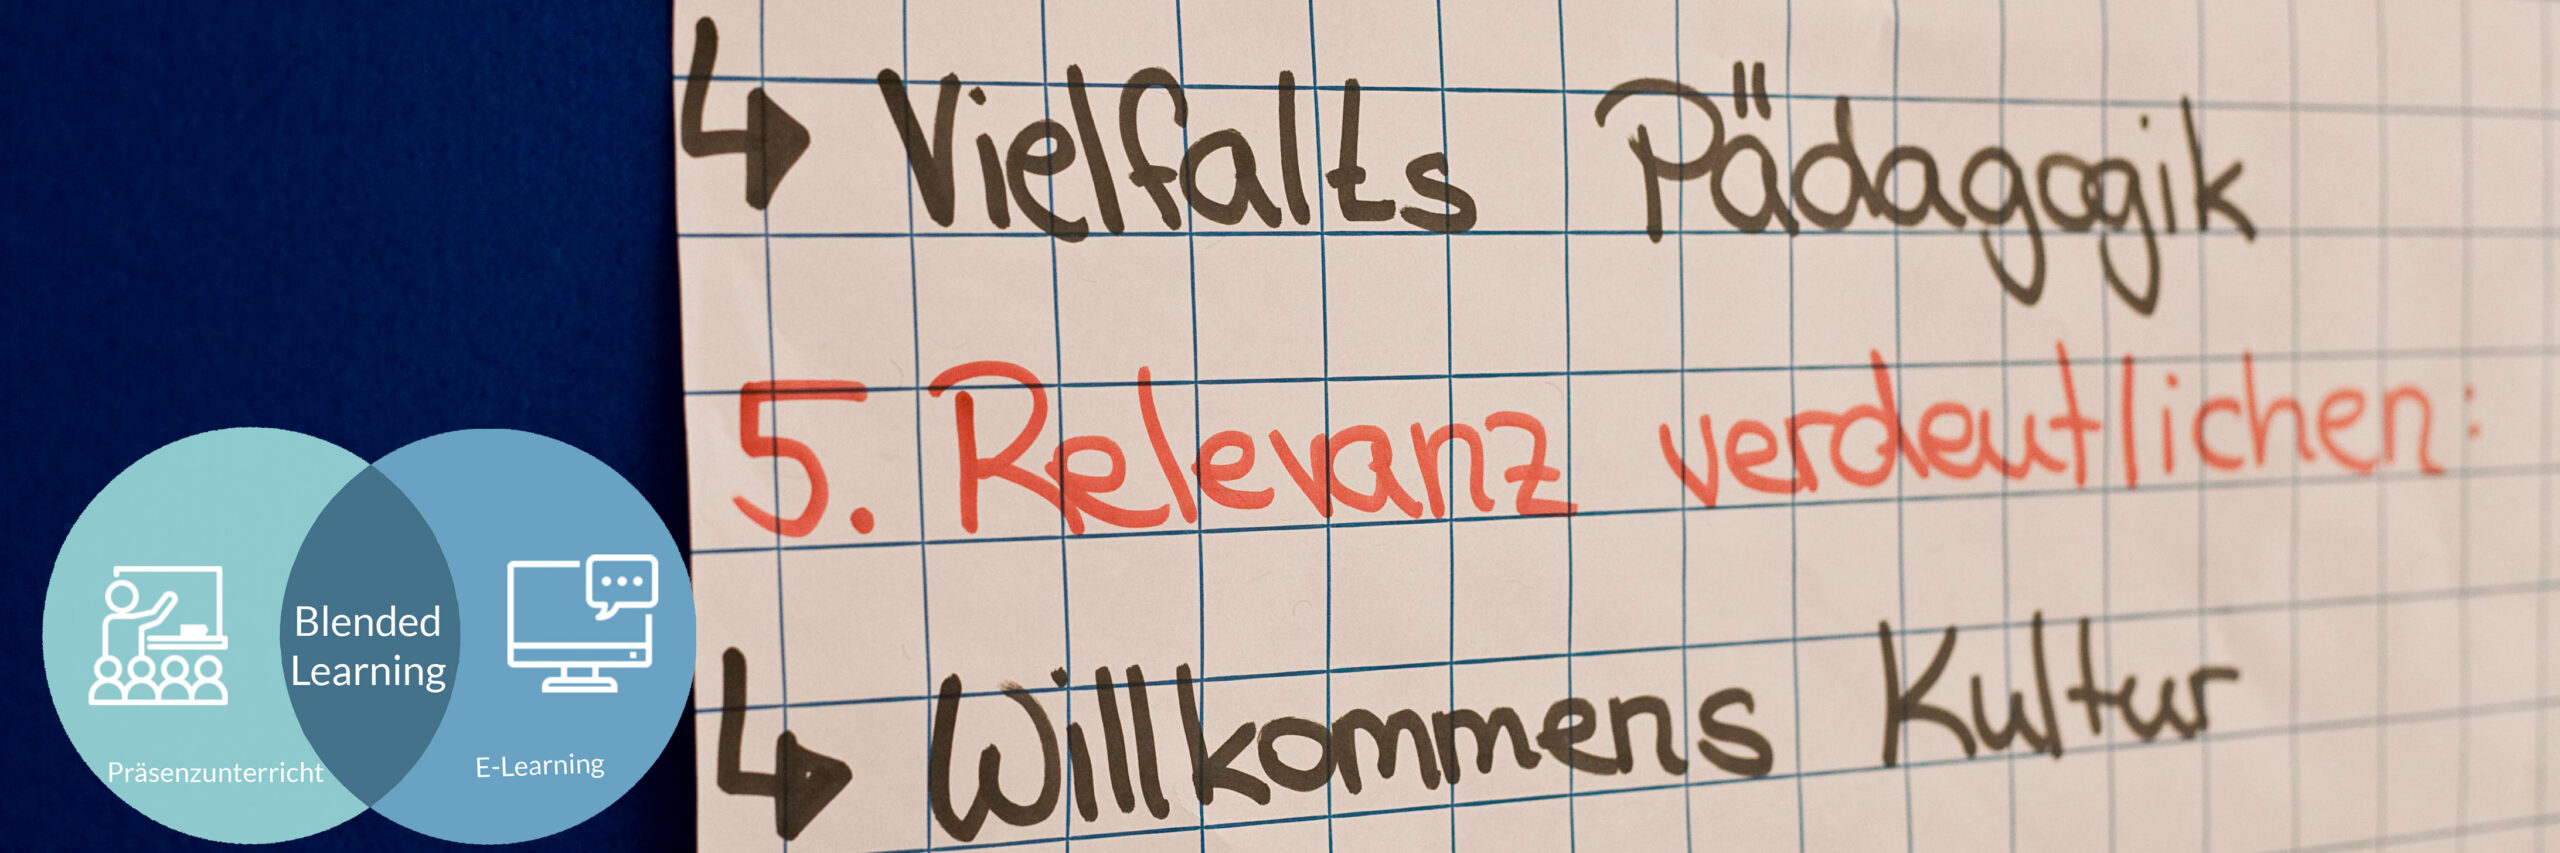 ↳ Vielfalts Pädagogik
5. Relevanz verdeutlichen:
↳ Willkommens Kultur
Blended
Learning
Präsenzunterricht
E-Learning